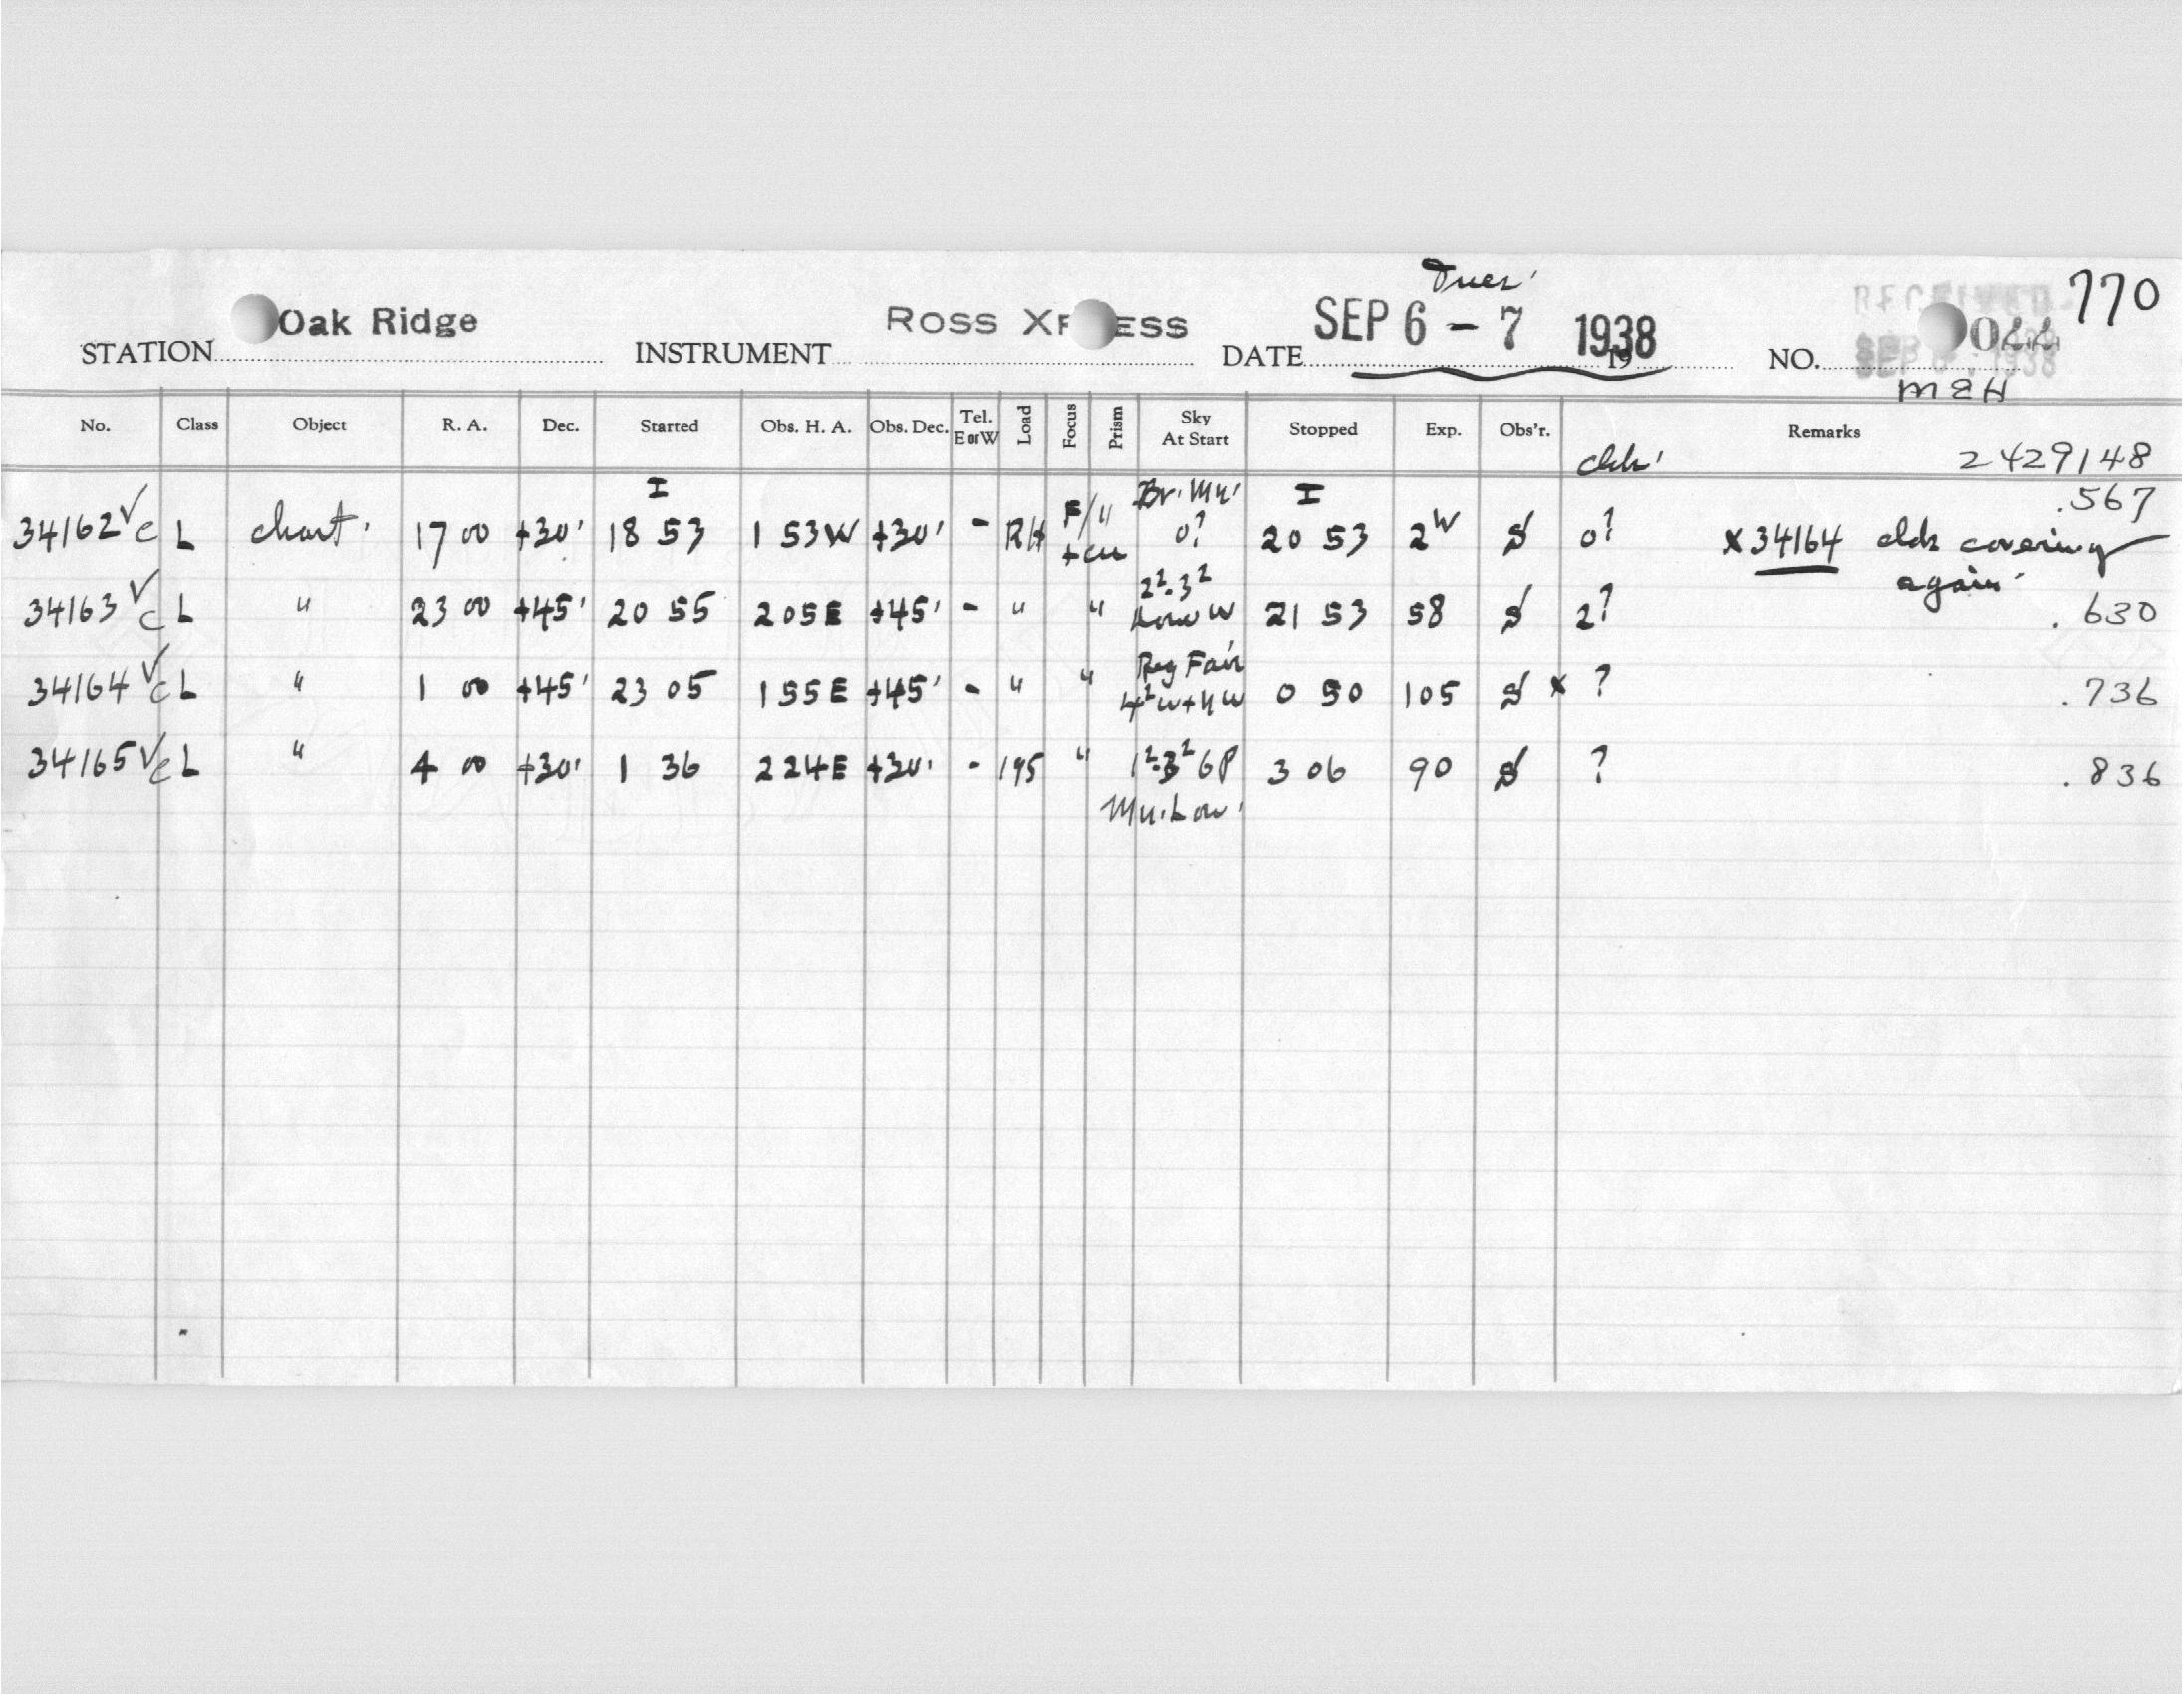 Tues'
770
Oak Ridge ROSS XPRESS SEP 6 - 7 1938 RECEIVED
STATION INSTRUMENT DATE 19 NO.
MEH
No. Class Object R. A. Dec. Started Obs. H. A. Obs. Dec. Tel. E or W Load Focus Prism Sky At Start Stopped Exp. Obs'r. Remarks
clds' 2429148
I Br. Mn. I .567
34162 √ c L chart. 17 00 +30' 18 53 1 53W +30' - RH 0? 20 53 2W S 0? x 34164 clds covering
again.
34163 √ c L " 23 00 +45' 20 55 2 05E +45' - " " 2²-3² Low W 21 53 58 S 2? .630
34164 √ c L " 1 00 +45' 23 05 1 55E +45' - " " Reg Fair 4² W + NW 0 50 105 S x ? .736
34165 √ c L " 4 00 +30' 1 36 2 24E +30' - 195 " 1²-3² GP 3 06 90 S ? .836
Mn. Low.